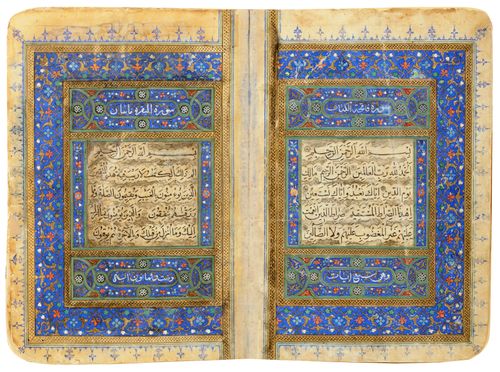 سورة فاتحة الكتاب
بسم الله الرحمن الرحيم
الحمد لله رب العالمين الرحمن الرحيم ملك
يوم الدين اياك نعبد واياك نستعين
اهدنا الصراط المستقيم صراط الذين انعمت
عليهم غير المغضوب عليهم ولا الضالين
وهي سبع ايات
سورة البقرة مائتان
بسم الله الرحمن الرحيم
الم ذلك الكتاب لا ريب فيه هدى للمتقين
الذين يؤمنون بالغيب ويقيمون الصلوة و
مما رزقناهم ينفقون والذين يؤمنون بما انزل
اليك وما انزل من قبلك وبالاخرة هم يوقنون